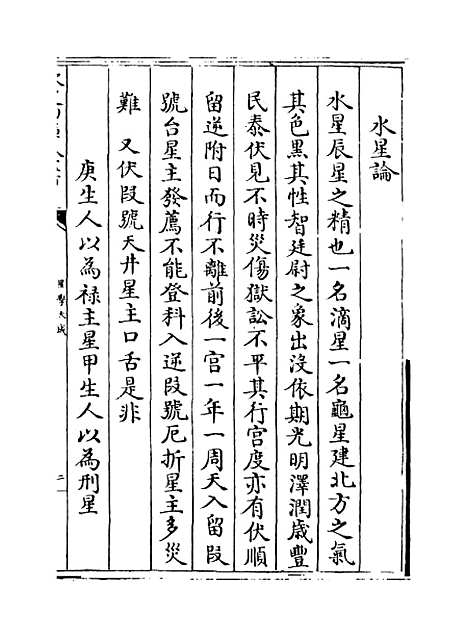 水星論
水星辰星之精也一名滴星一名龜星建北方之氣
其色黑其性智廷尉之象出没依期光明澤潤歲豐
民泰伏見不時災傷獄訟不平其行宮度亦有伏順
留逆附日而行不離前後一宮一年一周天入留段
號台星主發薦不能登科入逆段號厄折星主多災
難 又伏段號天井星主口舌是非
庚生人以為禄主星甲生人以為刑星
星學大成